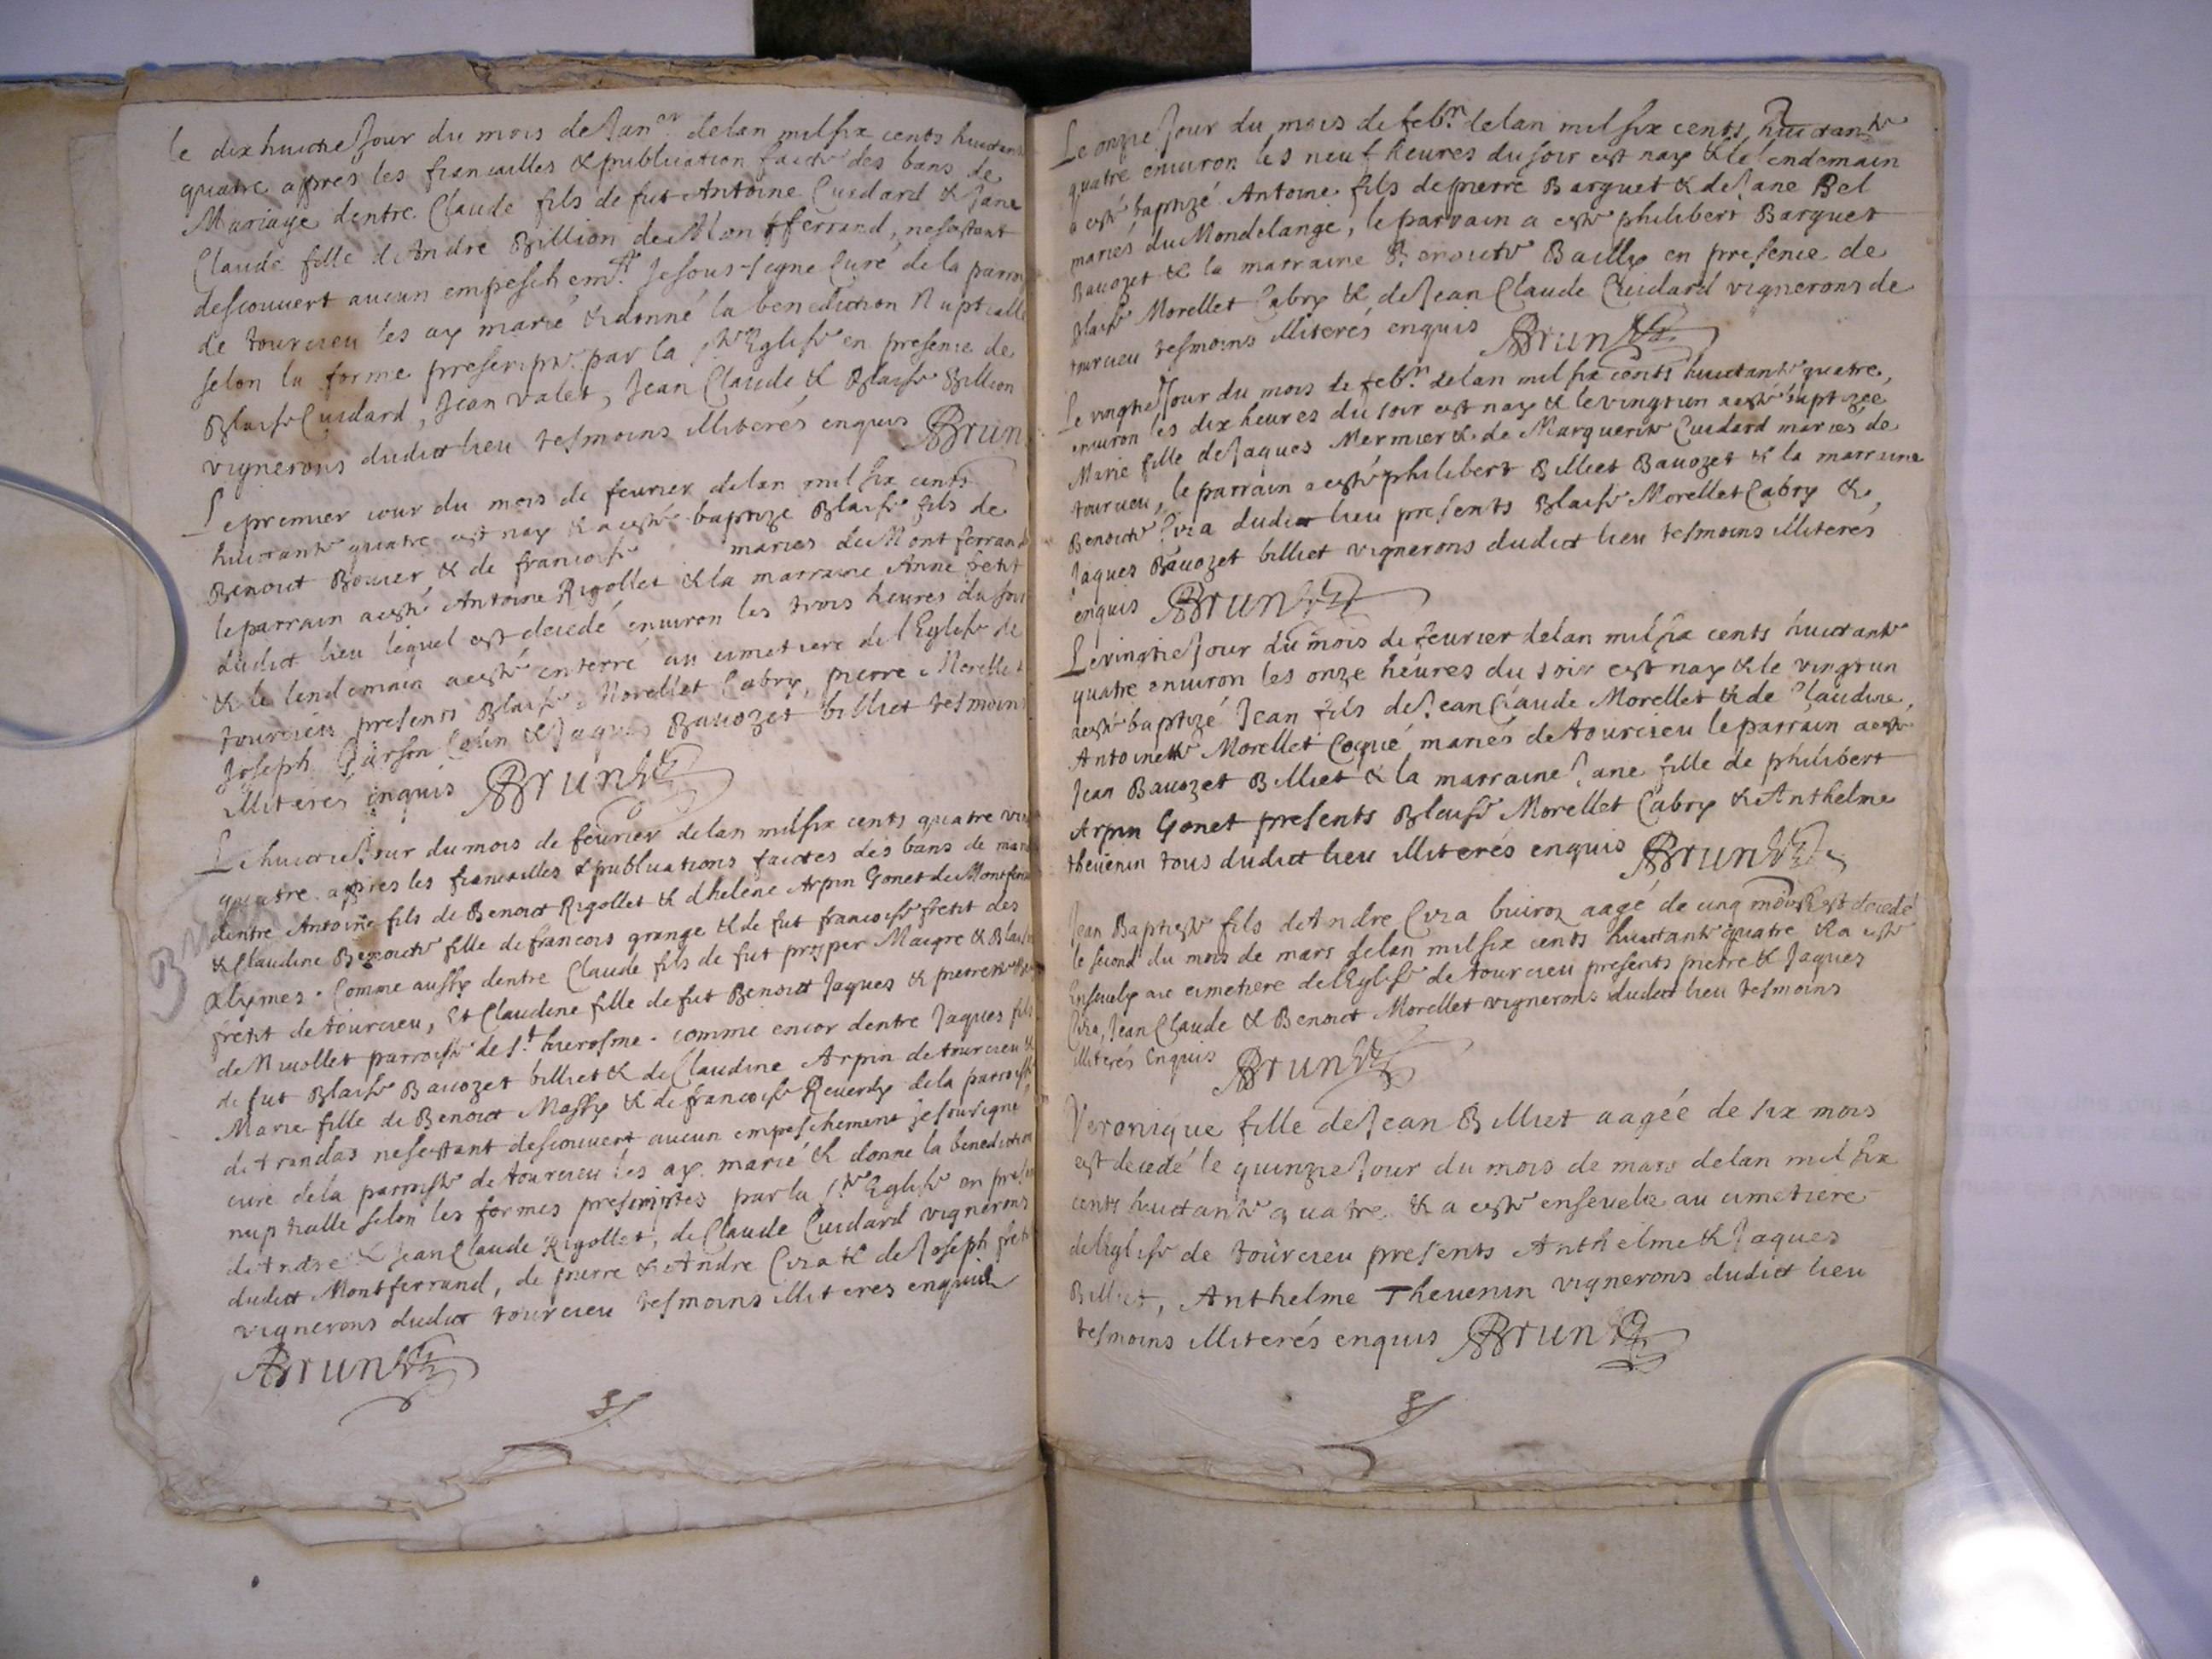 le dix huictie Jour du mois de Jan.er de lan mil six cents huictant
quatre appres les fiancailles & publication faicte des bans de
Mariage dentre Claude fils de fut Antoine Cuidard & Jane
Claude fille d'Andre Billion de Montfferrand, nesestant
descouvert aucun empeschem.t Je sous-signe Curé de la parro
de tourcieu les ay marié & donné la benediction Nuptialle
selon la forme prescripte par la s.te Eglise en presence de
Blaise Cuidard, Jean valet, Jean Claude & Blaise Billion
vignerons dudict lieu tesmoins illiterés enquis Brun
Le premier iour du mois de feurier de lan mil six cents
huictante quatre est nay & a esté baptize Blaise fils de
Benoict Bouier & de francoise maries de Montferrand
le parrain a esté Antoine Rigollet & la marraine Anne fretit
dudict lieu lequel est decedé enuiron les trois heures du soir
& le lendemain a esté enterré au cimetiere de l'Eglise de
tourcieu presents Blaise Morellet Cabry, pierre Morellet
Joseph Curson & Jaques Bauozet billiet tesmoins
illiteres enquis Brun
Le huictie Jour du mois de feurier de lan mil six cents quatre vin
quatre appres les fiancailles & publications faictes des bans de mari
dentre Antoine fils de Benoict Rigollet & d'helene Arpin Gonet de Montferra
& Claudine Benoicte fille de francois grange & de fut francoise fretit des
Alymes. Comme aussy dentre Claude fils de fut prosper Maigre & Blaise
fretit de tourcieu, Et Claudine fille de fut Benoict Jaques & pierrette
de Niuollet parroisse de S.t hierosme. comme encor dentre Jaques fils
de fut Blaise Bauozet billiet & de Claudine Arpin de tourcieu &
Marie fille de Benoict Massy & de francoise Reuerdy de la parroisse
de trandas nesestant descouuert aucun empeschement je sousigné
curé de la parroisse de tourcieu les ay marié & donne la benediction
nuptialle selon les formes prescriptes par la s.te Eglise en presen
d'Andre & Jean Claude Rigollet, de Claude Cuidard vignerons
dudict Montferrand, de pierre & Andre Cira & de Joseph fretit
vignerons dudict tourcieu tesmoins illiteres enquis
Brun
Le onzie Jour du mois de feb.r de lan mil six cents huictante
quatre enuiron les neuf heures du soir est nay & le lendemain
a esté baptizé Antoine fils de pierre Barguet & de Jane Bel
mariés du Mondelange, le parrain a esté philibert Barguet
Bauozet & la marraine Benoicte Bailly en presence de
Blaise Morellet Cabry & de Jean Claude Cuidard vignerons de
tourcieu tesmoins illiterés enquis Brun
Le vingtie Jour du mois de feb.r de lan mil six cents huictante quatre,
enuiron les dix heures du soir est nay & le vingtun a esté baptizée
Marie fille de Jaques Mermier & de Marguerite Cuidard mariés de
tourcieu, le parrain a esté philibert Billiet Bauozet & la marraine
Benoicte Cira dudict lieu presents Blaise Morellet Cabry &,
Jaques Bauozet billiet vignerons dudict lieu tesmoins illiterés
enquis Brun
Le vingtie Jour du mois de feurier de lan mil six cents huictante
quatre enuiron les onze heures du soir est nay & le vingtun
a esté baptizé Jean fils de Jean Claude Morellet & de Claudine,
Antoinette Morellet Coquié mariés de tourcieu le parrain a esté
Jean Bauozet Billiet & la marraine Jane fille de philibert
Arpin Gonet presents Blaise Morellet Cabry & Anthelme
theuenin tous dudict lieu illiterés enquis Brun
Jean Baptiste fils d'Andre Cira buiron aagé de cinq mois est decedé
le second du mois de mars de lan mil six cents huictante quatre & a esté
Enseuely au cimetiere de l'Eglise de tourcieu presents pierre & Jaques
Cira, Jean Claude & Benoict Morellet vignerons dudict lieu tesmoins
illiterés Enquis Brun
Veronique fille de Jean Billiet aagéé de six mois
est decedé le quinzie Jour du mois de mars de lan mil six
cents huictante quatre & a esté enseuelie au cimetiere
de l'Eglise de tourcieu presents Anthelme & Jaques
Billiet, Anthelme Theuenin vignerons dudict lieu
tesmoins illiterés enquis Brun